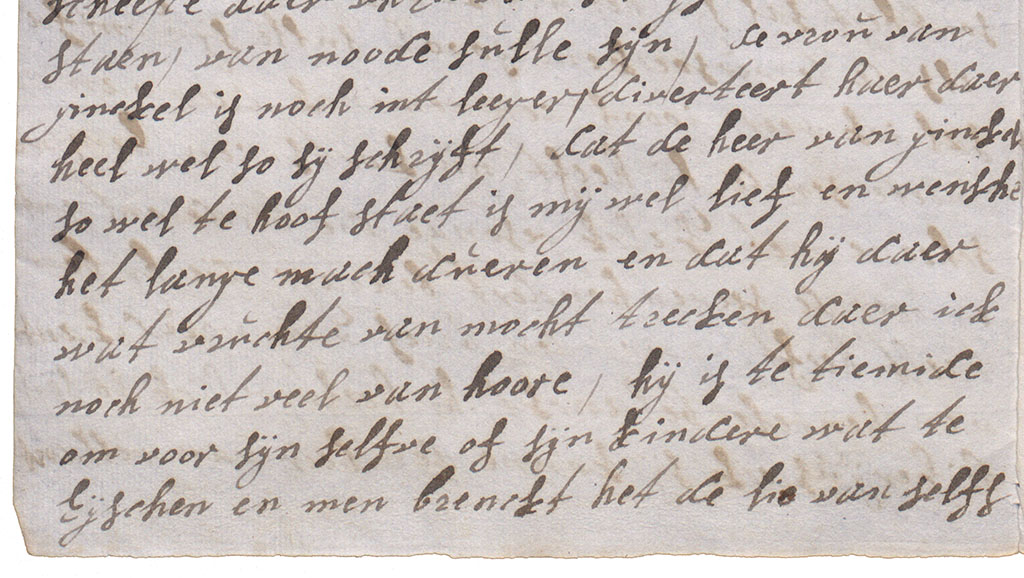 scheepe daer
staen, van noode sulle sÿn, de vrou van
ginckel is noch int leeger, diverteert haer daer
heel wel so sÿ schrÿft, dat de heer van ginckel
so wel te hoof staet is mÿ wel lief en wensche
het lange mach dueren en dat hÿ daer
wat vruchte van mocht trecken daer ick
noch niet veel van hoore, hÿ is te tiemide
om voor sÿn selfve of sÿn kindere wat te
Eÿschen en men brenckt het de lie van selfs